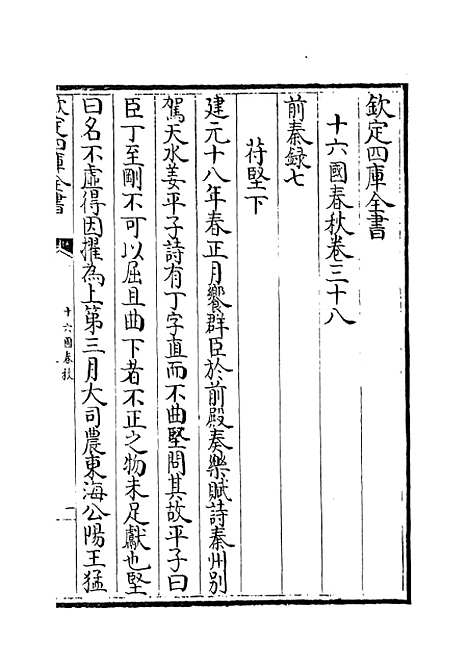 欽定四庫全書
十六國春秋卷三十八
前秦録七
苻堅下
建元十八年春正月饗群臣於前殿奏樂賦詩秦州别
駕天水姜平子詩有丁字直而不曲堅問其故平子曰
臣丁至剛不可以屈且曲下者不正之物未足獻也堅
曰名不虚得因擢為上第三月大司農東海公陽王猛
欽定四庫全書
十六國春秋
一